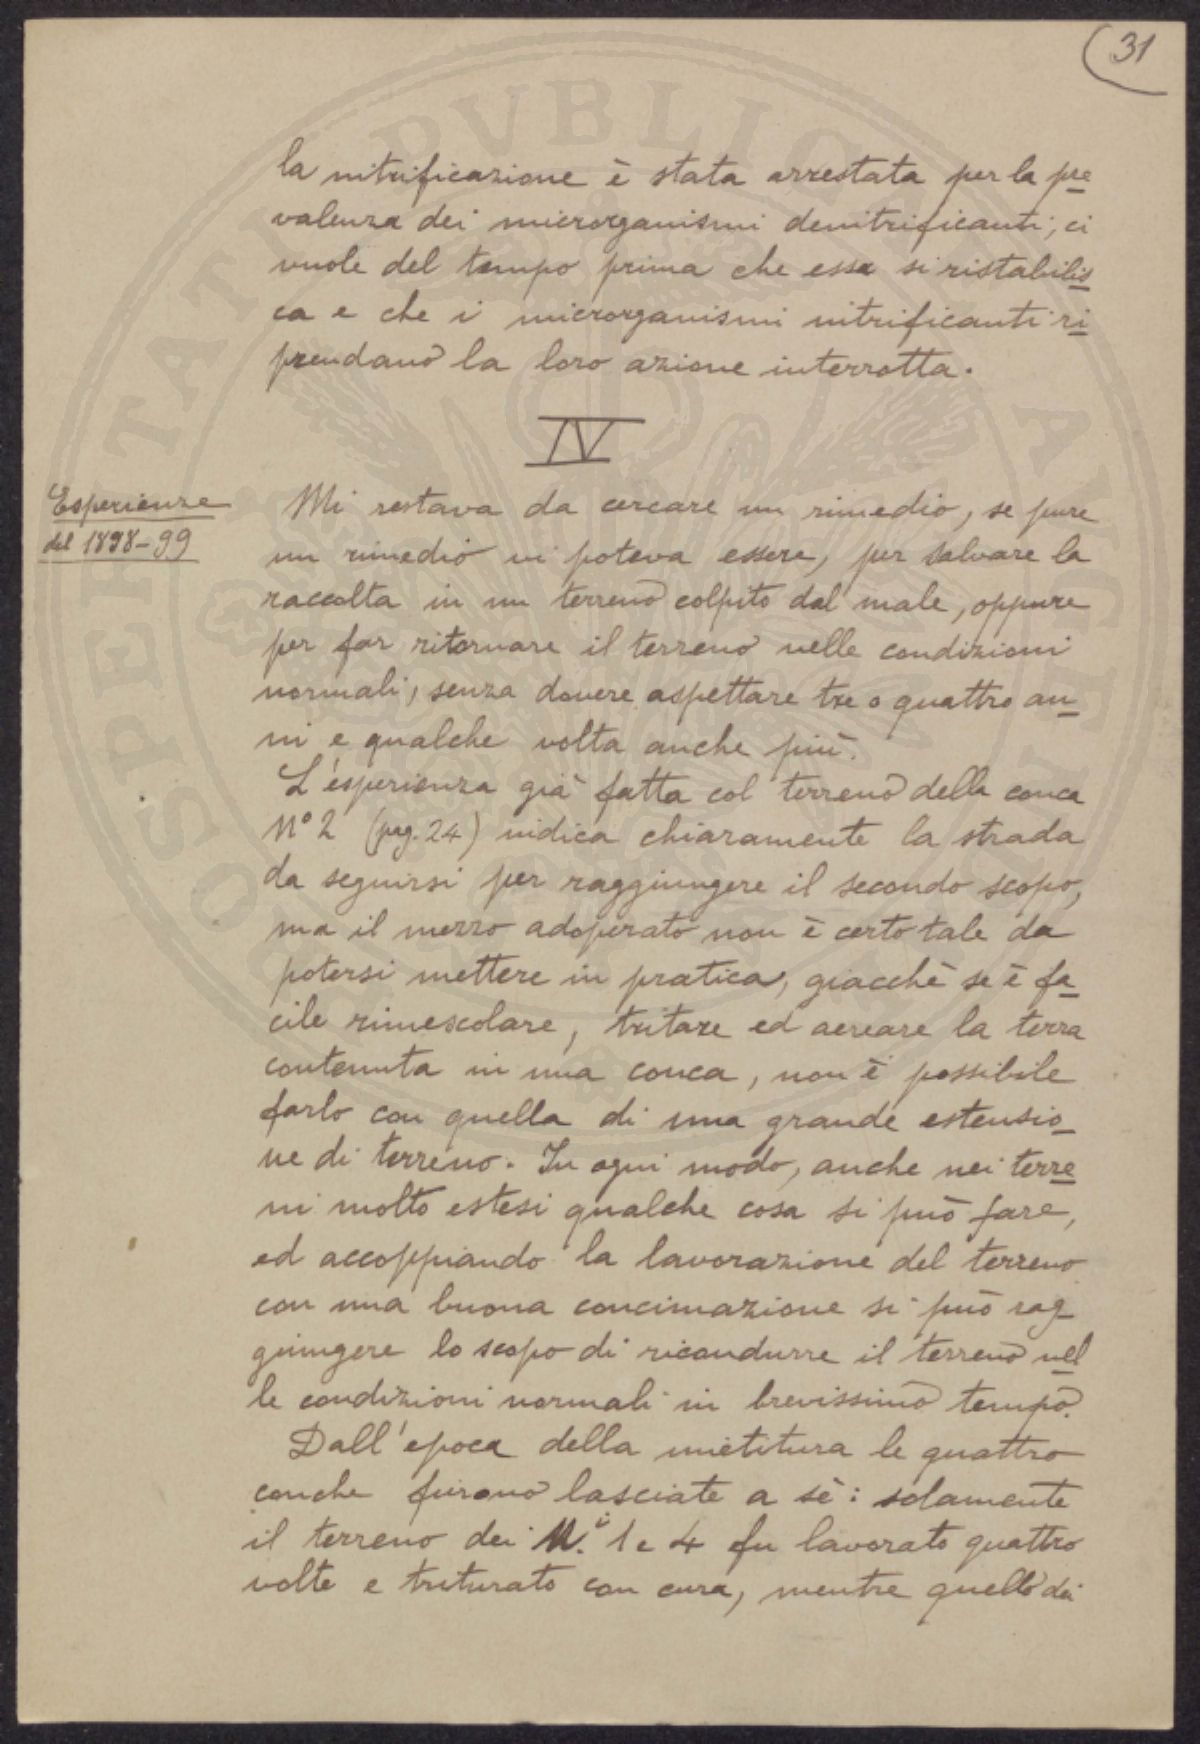 31
la nitrificazione è stata arrestata per la pre
valenza dei microrganismi denitrificanti; ci
vuole del tempo prima che essa si ristabilis
ca e che i microrganismi nitrificanti ri
prendano la loro azione interrotta.
IV
Esperienze
del 1898-99
Mi restava da cercare un rimedio, se pure
un rimedio vi poteva essere, per salvare la
raccolta in un terreno colpito dal male, oppure
per far ritornare il terreno nelle condizioni
normali, senza dovere aspettare tre o quattro an-
ni e qualche volta anche più.
L'esperienza già fatta col terreno della conca
N° 2 (pag. 24) indica chiaramente la strada
da seguirsi per raggiungere il secondo scopo,
ma il mezzo adoperato non è certo tale da
potersi mettere in pratica, giacchè se è fa-
cile rimescolare, tritare ed aereare la terra
contenuta in una conca, non è possibile
farlo con quella di una grande estensio-
ne di terreno. In ogni modo, anche nei terre
ni molto estesi qualche cosa si può fare,
ed accoppiando la lavorazione del terreno
con una buona concimazione si può rag-
giungere lo scopo di ricondurre il terreno nel
le condizioni normali in brevissimo tempo.
Dall'epoca della mietitura le quattro
conche furono lasciate a sè: solamente
il terreno dei N.i 1 e 4 fu lavorato quattro
volte e triturato con cura, mentre quello dei
PROSPERITATI PVBLICAE AVGENDAE